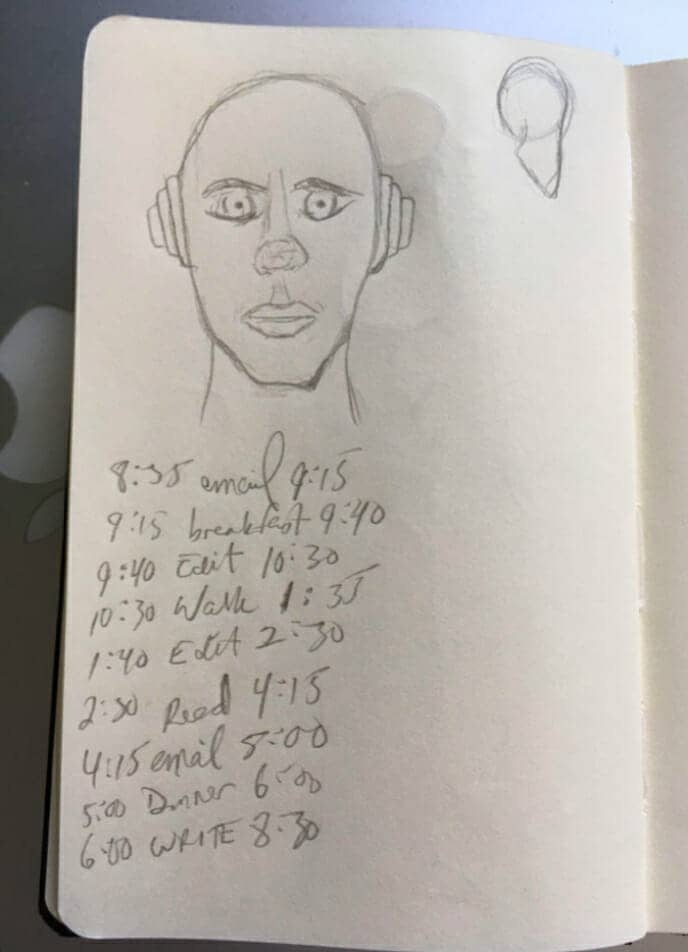 8:35 email 9:15
9:15 breakfast 9:40
9:40 Edit 10:30
10:30 Walk 1:35
1:40 Edit 2:30
2:30 Read 4:15
4:15 email 5:00
5:00 Dinner 6:00
6:00 WRITE 8:30